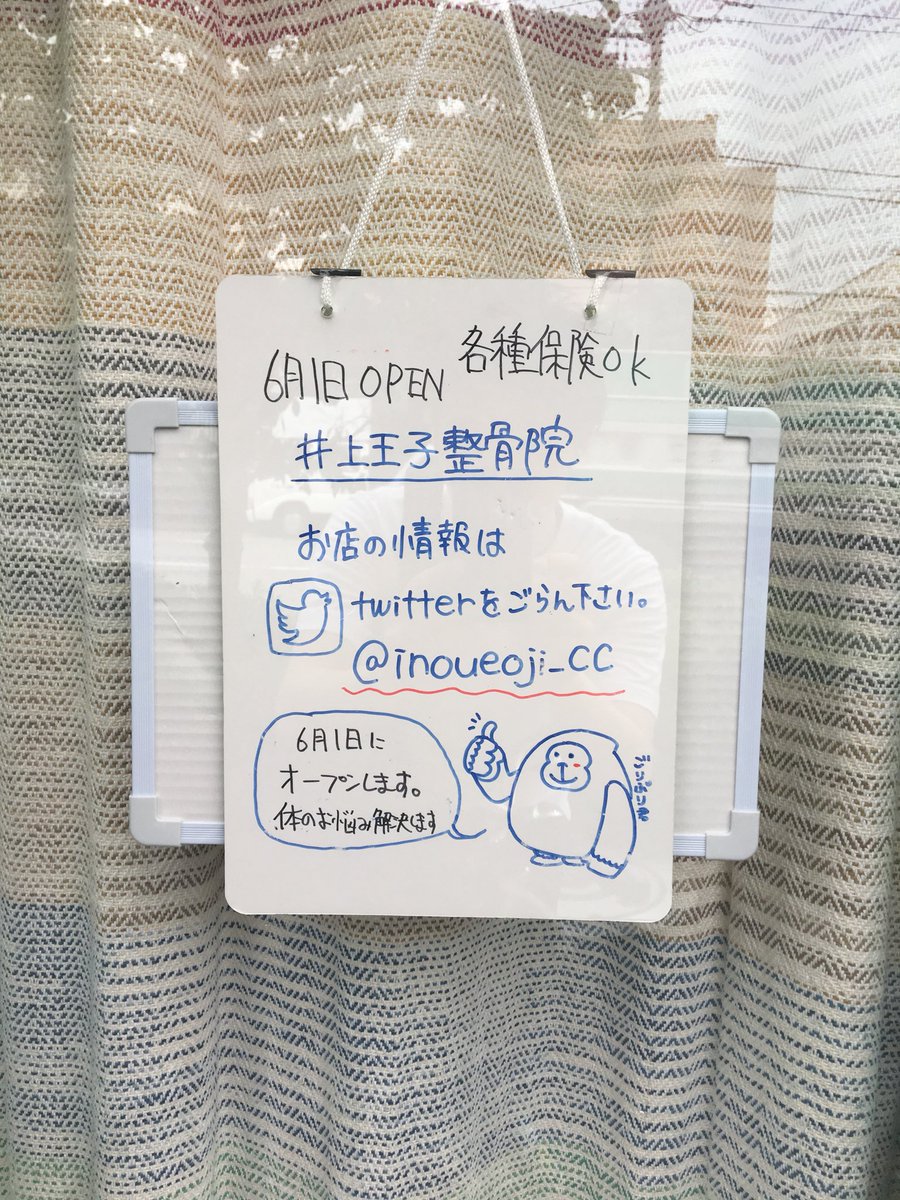 6月1日 OPEN
各種保険ok
井上王子整骨院
お店の情報は
twitterをごらん下さい。
@inoueoji_CC
6月1日に
オープンします。
体のお悩み解決します